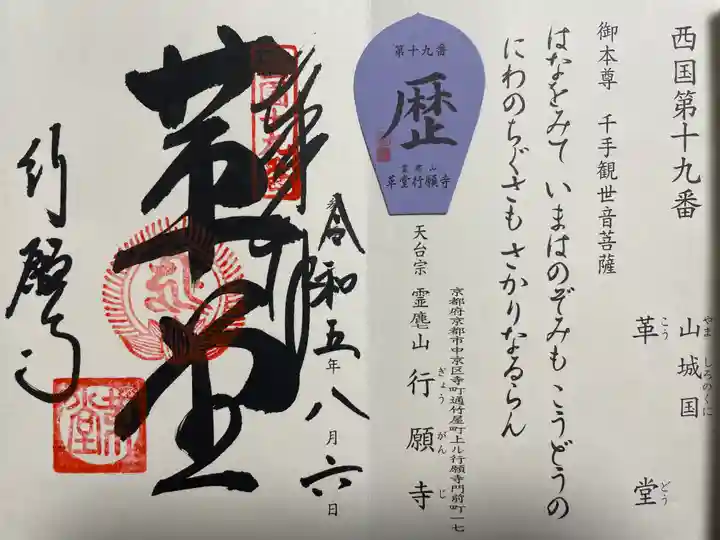 西国第十九番
山城国
やま しろのくに
革堂
こう どう
御本尊 千手観世音菩薩
はなをみて いまはのぞみも こうどうの
にわのちぐさも さかりなるらん
第十九番
歴
霊麀山
革堂行願寺
京都府京都市中京区寺町通竹屋町上ル行願寺門前町一七
天台宗 霊麀山 行願寺
ぎょう がん じ
令和五年八月六日
奉拝
西国十九番
革堂
行願寺